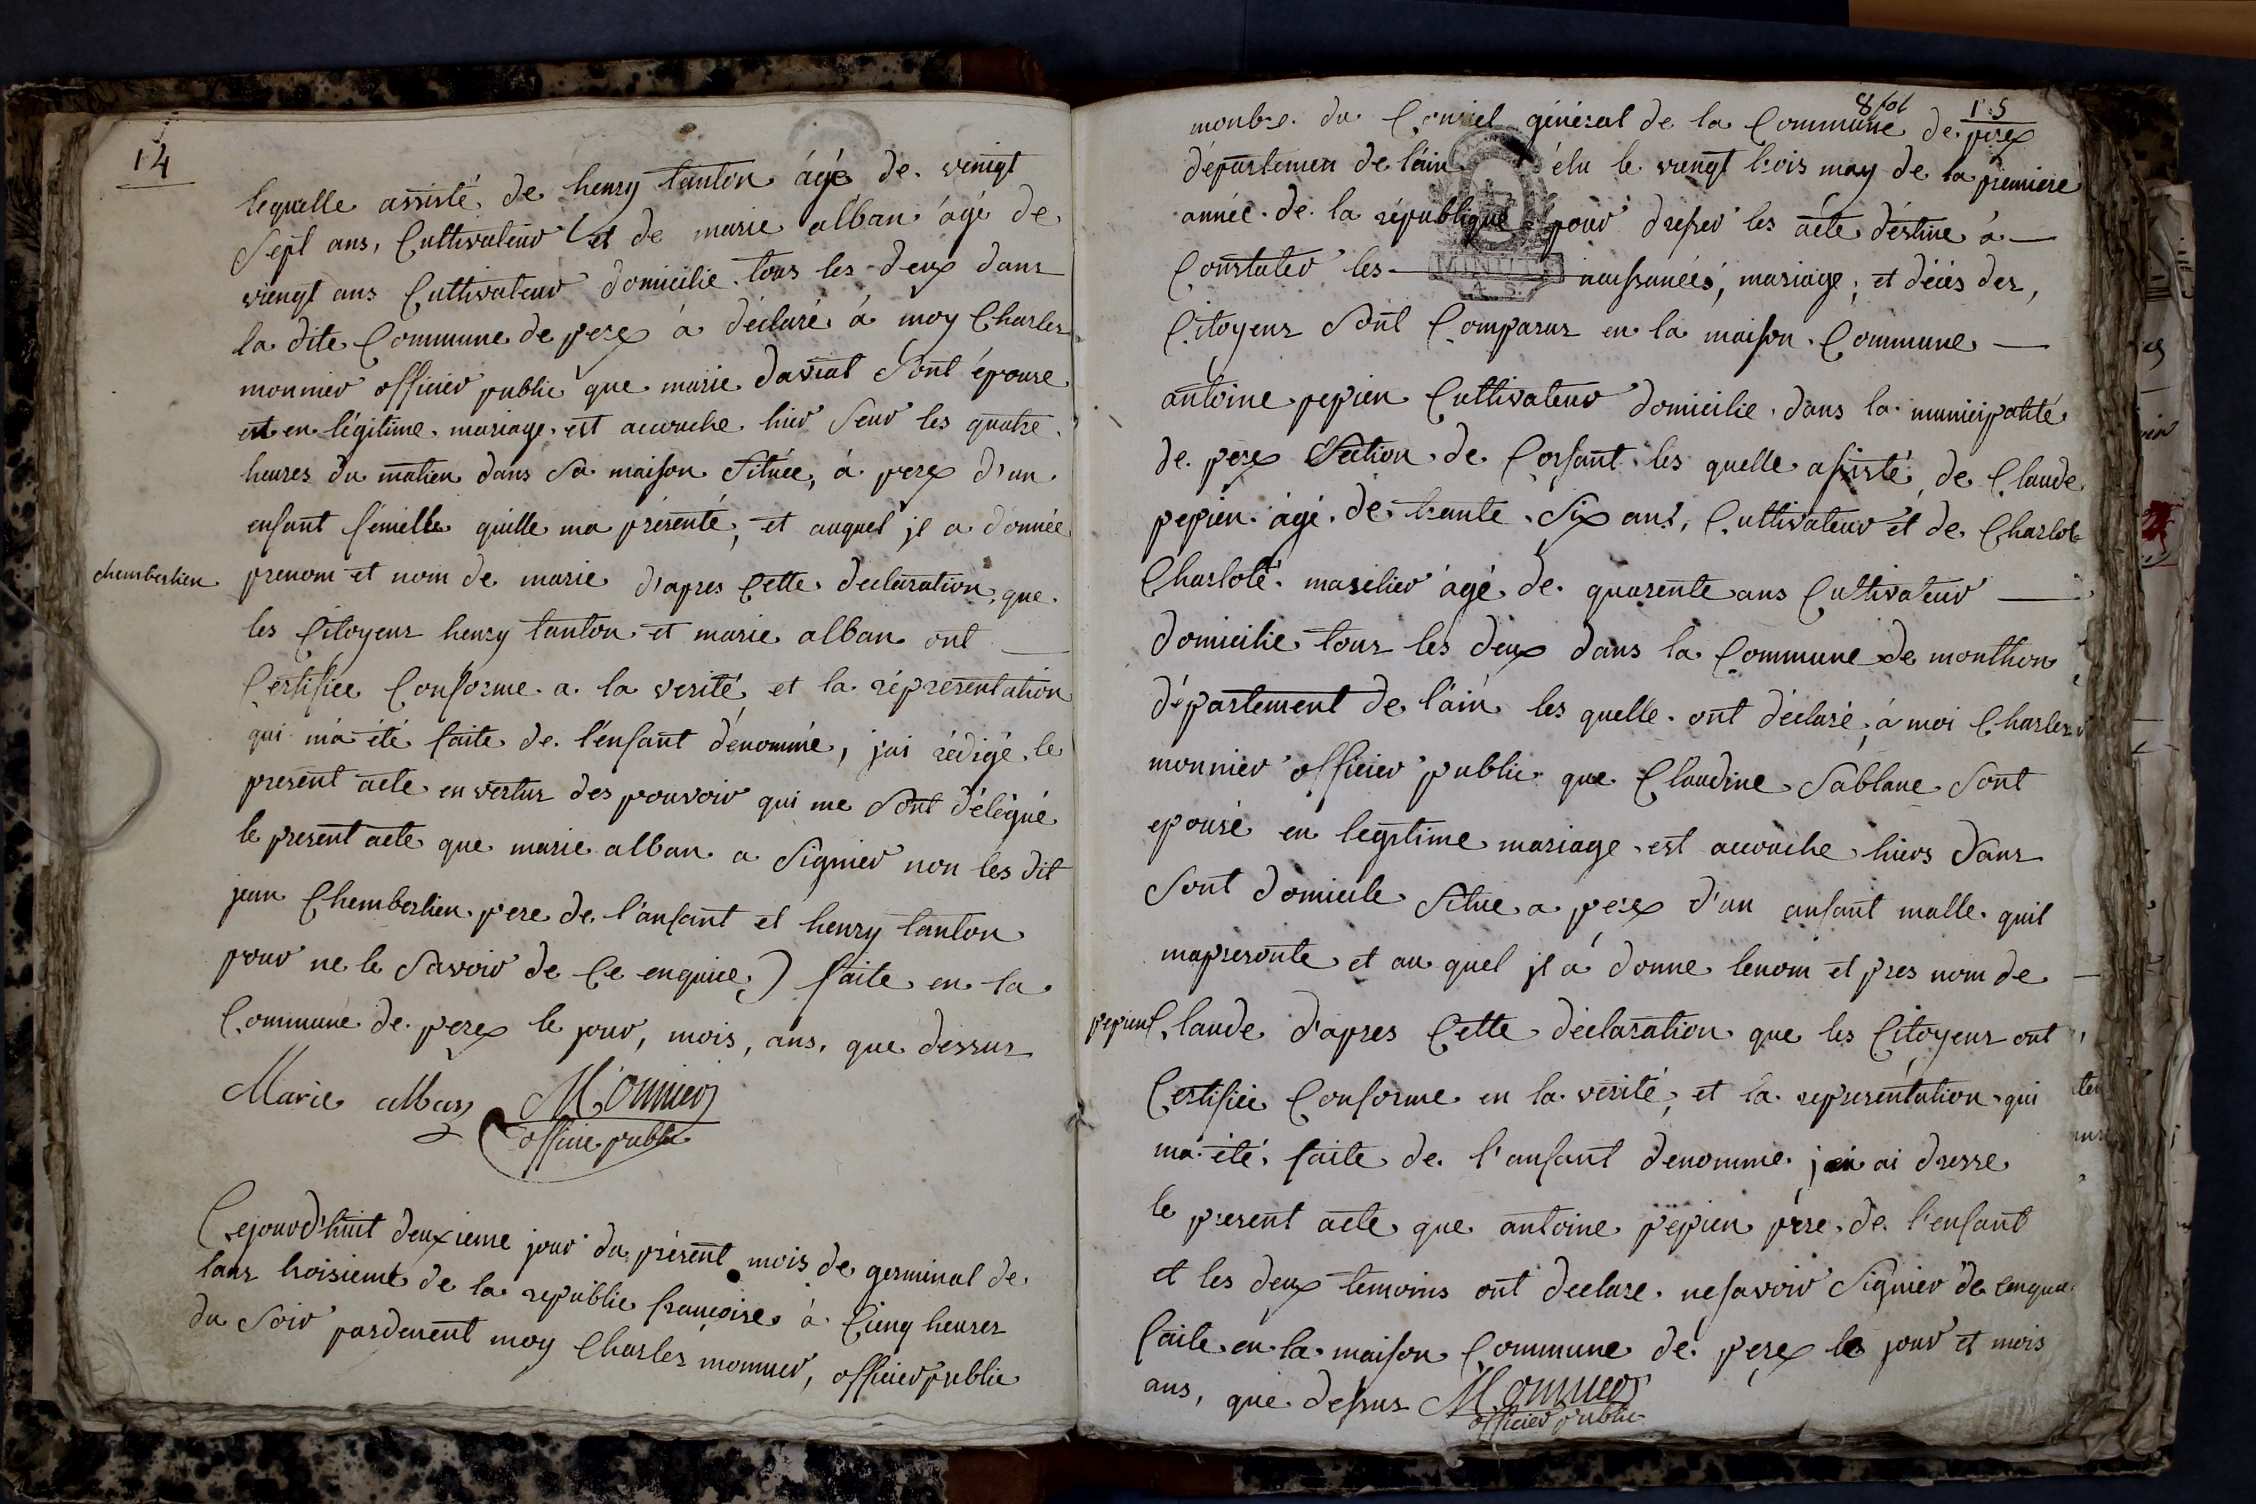 14
lequelle assisté de henry tanton âgé de vinigt
Sept ans, Cultivateur et de marie alban âgé de
viengt ans Cultivateur domicilie tous les deux dans
la dite Commune de perex á déclaré á moy Charles
monnier officier public que marie daviat Sont épouse
est en légitime mariage est accouche hier Seur les quatre
heures du matien dans Sa maison Située, á perex d'un
enfant fémielle quille ma présenté, et auquel jl a donnée
chemberlien prenom et nom de marie d'apres Cette declaration, que
les Citoyens henry tanton et marie alban ont
Certifiée Conforme a la verité et la réprésentation
qui m'á été faite de l'énfant dénommé, j'ai rédigé le
present acte en vertus des pouvoir qui me Sont délégué
le present acte que marie alban a Signier non les dit
jean Chemberlien pere de l'anfant et henry tanton
pour ne le Savoir de Ce enquice) faite en la
Commune de perex le jour, mois, ans, que dessus
Marie alban Monnier
officie public
Cejourd'huit deuxieme jour du présent mois de germinal de
lans troisieme de la republic françoise á Cienq heures
du Soir pardenent moy Charles monnier, officier public
15
monbre du Consiel général de la Commune de perex
départemen de l'ain élu le viengt trois may de la premiere
année de la république pour dresser les acte déstine á
MINUTE
Constater les naissancéés, mariage, et décés des,
Citoyens Sont Comparus en la maison Commune
antoine pepien Cultivateur domicilie dans la municipalité
de perex Section de Corsant les quelle assisté de Claude
pepien âgé de trante Six ans, Cultivateur et de Charlote
Charloté masilier âgé de quarente ans Cultivateur
domicilie tous les deux dans la Commune de monthon
département de l'ain les quelle ont déclaré á moi Charles
monnier officier public que Claudine Sablane Sont
epousé en legitime mariage est accouche hiers dans
Sont domicile Situe a perex d'un anfant malle quil
mapresonte et au quel jl á donne lenom et pres nom de
pepien Claude d'apres Cette déclaration que les Citoyens ont
Certifiée Conforme en la verité, et la représentation qui
ma été faite de l'anfant denomme j'en ai dresse
le present acte que antoine pepien pére de l'enfant
et les deux temoins ont declare nesavoir Signier de enquis
faite en la maison Commune de perex le jour et mois
ans, que dessus Monnier
officier public